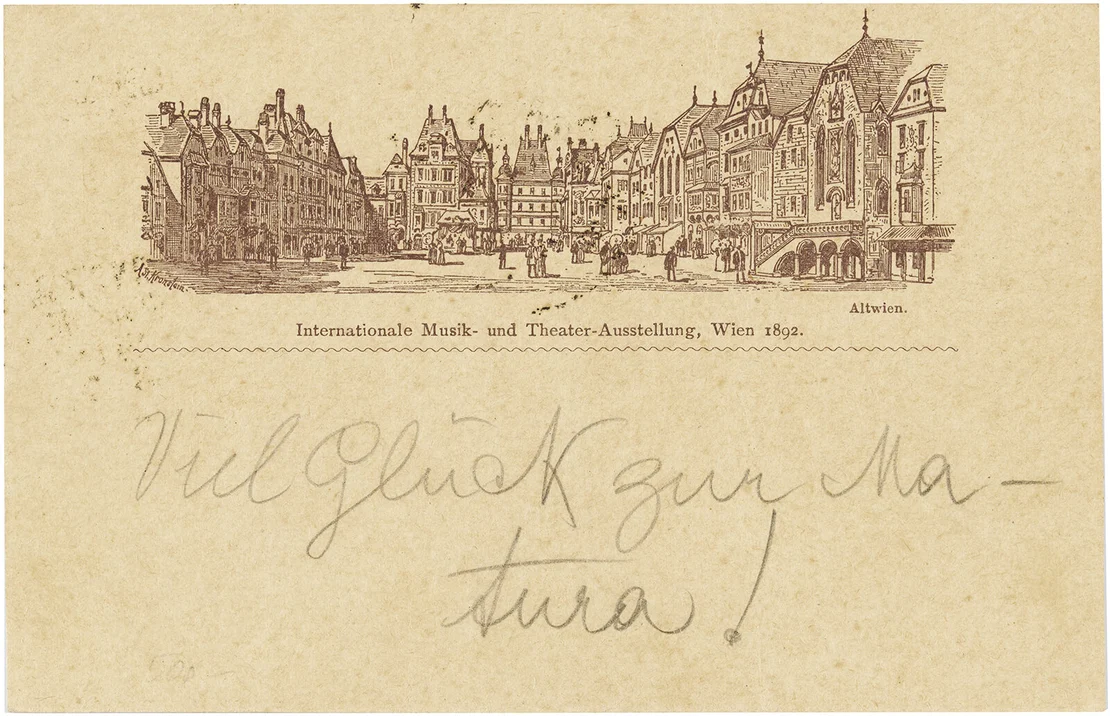 Altwien.
Internationale Musik- und Theater-Ausstellung, Wien 1892.
Viel Glück zur Ma-
tura!